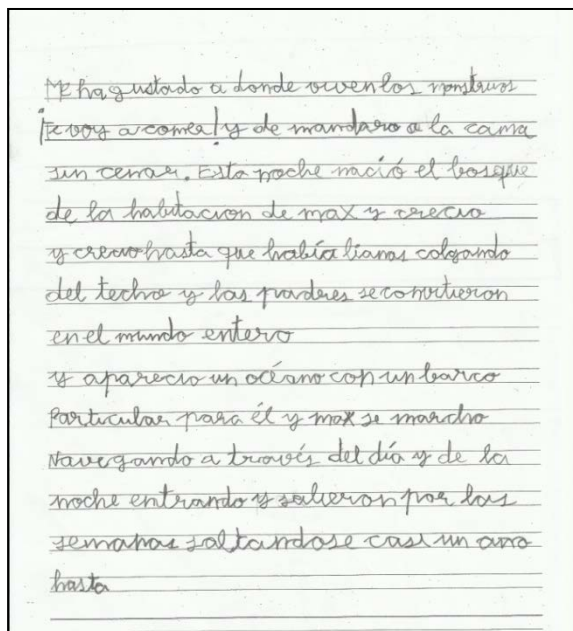 Me ha gustado a donde viven los monstruos
¡te voy a comer! y de mandaro a la cama
sin cenar. Esta noche nació el bosque
de la habitacion de max y crecio
y crecio hasta que había lianas colgando
del techo y las paderes se convirtieron
en el mundo entero
y aparecio un océano con un barco
Particular para él y max se marcho
Navegando a través del día y de la
noche entrando y salieron por las
semanas saltandose casi un ano
hasta